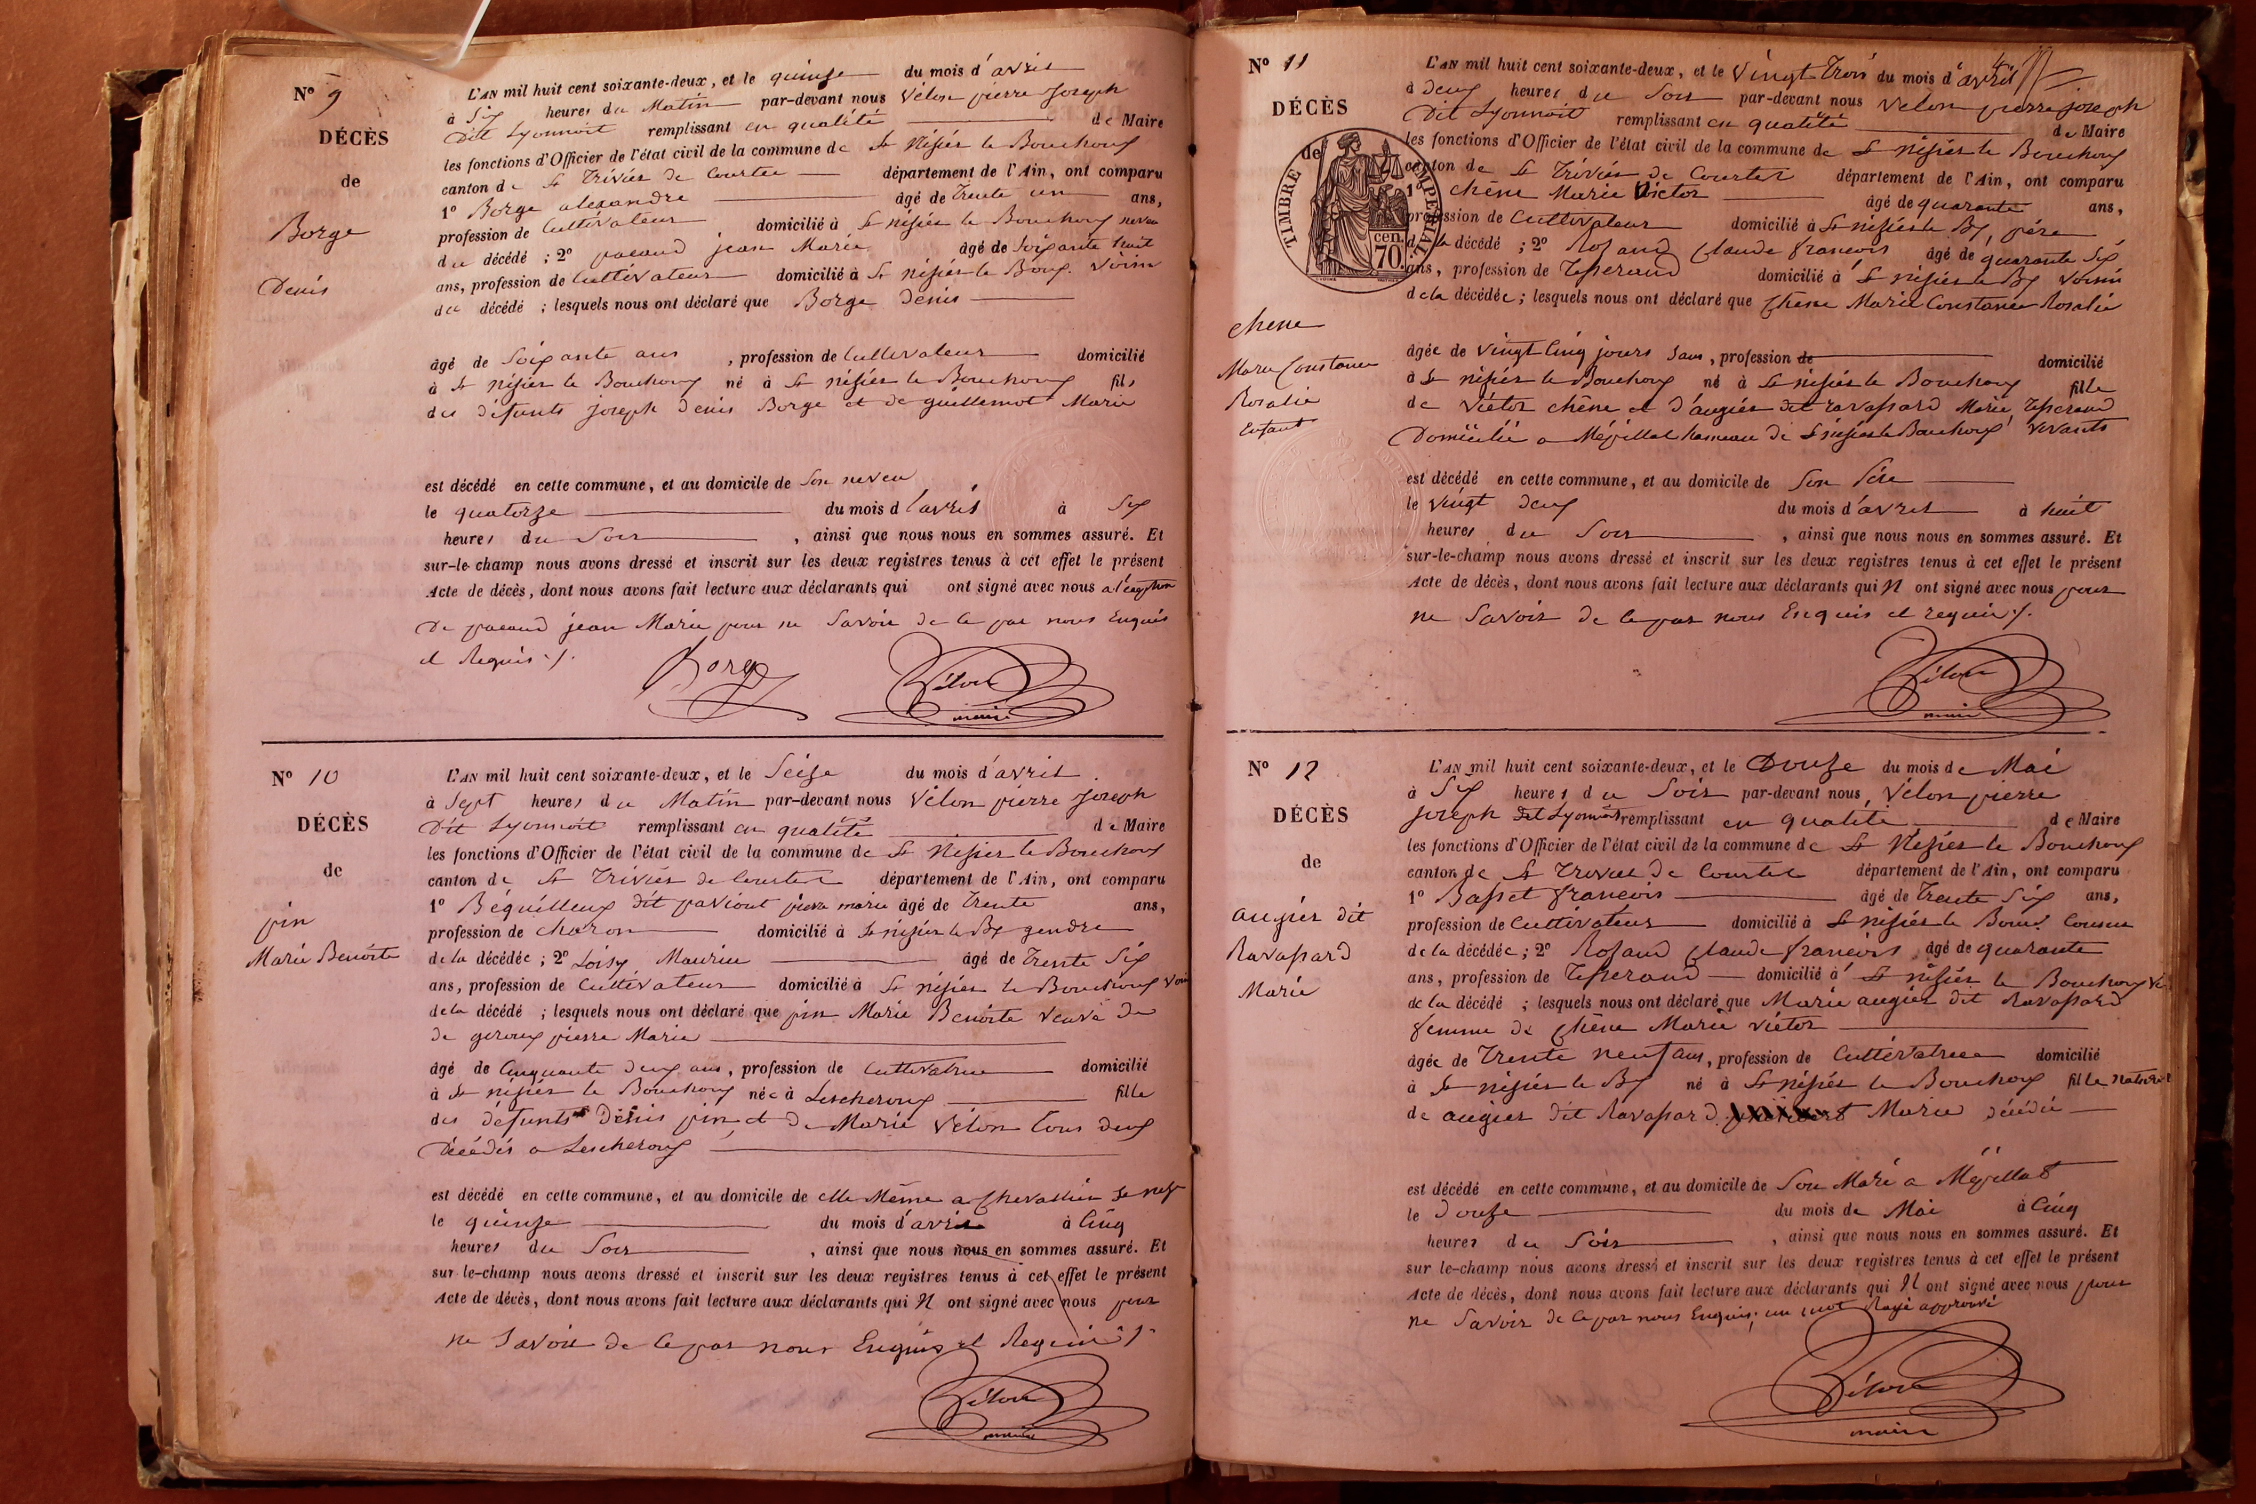 N° 9
DÉCÈS
de
Borge
Denis
L'AN mil huit cent soixante-deux, et le quinze du mois d'avril
à Six heures du Matin par-devant nous Vélon pierre Joseph
Dit Lyonnoit remplissant en qualité de Maire
les fonctions d'Officier de l'état civil de la commune de St Nizier le Bouchoux
canton de St Trivier de Courtes département de l'Ain, ont comparu
1° Borge alexandre âgé de Trente un ans,
profession de Cultivateur domicilié à St nizier le Bouchoux neveu
du décédé ; 2° pacaud jean Marie âgé de Soixante huit
ans, profession de Cultivateur domicilié à St nizier le Boux. Voisin
du décédé ; lesquels nous ont déclaré que Borge Denis
âgé de Soixante ans , profession de Cultivateur domicilié
à St nizier le Bouchoux né à St nizier le Bouchoux fils
des défunts joseph Denis Borge et de guillemot Marie
est décédé en cette commune, et au domicile de Son neveu
le quatorze du mois d'avril à Six
heures du Soir , ainsi que nous nous en sommes assuré. Et
sur-le-champ nous avons dressé et inscrit sur les deux registres tenus à cet effet le présent
Acte de décès, dont nous avons fait lecture aux déclarants qui ont signé avec nous a l'exception
De pacaud jean Marie pour ne Savoir de ce par nous Enquis
et Requis ./.
Borge Vélon
maire
N° 10
DÉCÈS
de
pin
Marie Benoite
L'AN mil huit cent soixante-deux, et le Seize du mois d'avril.
à Sept heures du Matin par-devant nous Vélon pierre Joseph
Dit Lyonnoit remplissant en qualité de Maire
les fonctions d'Officier de l'état civil de la commune de St Nizier le Bouchoux
canton de St Trivier de Courtes département de l'Ain, ont comparu
1° Béguilleux dit paviout pierre marie âgé de Trente ans,
profession de charon domicilié à St nizier le Bx gendre
de la décédée ; 2° Loisy Maurice âgé de Trente Six
ans, profession de Cultivateur domicilié à St nizier le Bouchoux Voi
de la décédé ; lesquels nous ont déclaré que pin Marie Benoite veuve de
de geroux pierre Marie
âgé de Cinquante deux ans, profession de Cultivatrice domicilié
à St nizier le Bouchoux née à Lescheroux fille
des défunts Denis pin et de Marie Vélon tous deux
Décédés a Lescheroux
est décédé en cette commune, et au domicile de elle Même a Chevallier
le quinze du mois d'avril à Cinq
heures du Soir , ainsi que nous nous en sommes assuré. Et
sur-le-champ nous avons dressé et inscrit sur les deux registres tenus à cet effet le présent
Acte de décès, dont nous avons fait lecture aux déclarants qui N' ont signé avec nous pour
ne Savoir de ce par nous Enquis et Requis ./.
Vélon
maire
N° 11
DÉCÈS
de
TIMBRE IMPÉRIAL
70 cen.
chene
Marie Constance
Rosalie
Enfant
L'AN mil huit cent soixante-deux, et le Vingt Trois du mois d'avril
à deux heures du Soir par-devant nous Vélon pierre joseph
Dit Lyonnoit remplissant en qualité de Maire
les fonctions d'Officier de l'état civil de la commune de St nizier le Bouchoux
canton de St Trivier de Courtes département de l'Ain, ont comparu
1° Chêne Marie Victor âgé de quarante ans,
profession de Cultivateur domicilié à St nizier le Bx, père
de la décédé ; 2° Rosand Claude francois âgé de quarante Six
ans, profession de Tisserand domicilié à St nizier le Bx Voisin
de la décédée ; lesquels nous ont déclaré que Chêne Marie Constance Rosalie
âgée de Vingt Cinq jours Sans , profession de domicilié
à St nizier le Bouchoux né à St nizier le Bouchoux fille
de Victor chêne et d'augier dit ravassard Marie, Tisserand
Domicilié a Mézillat hameau de St nizier le Bouchoux Vivants
est décédé en cette commune, et au domicile de Son Père
le Vingt deux du mois d'avril à huit
heures du Soir , ainsi que nous nous en sommes assuré. Et
sur-le-champ nous avons dressé et inscrit sur les deux registres tenus à cet effet le présent
Acte de décès, dont nous avons fait lecture aux déclarants qui N' ont signé avec nous pour
ne Savoir de ce par nous Enquis et requis ./.
Vélon
maire
N° 12
DÉCÈS
de
augier dit
Ravassard
Marie
L'AN mil huit cent soixante-deux, et le Douze du mois de Mai
à Six heures du Soir par-devant nous, Vélon pierre
Joseph dit Lyonnoit remplissant en qualité de Maire
les fonctions d'Officier de l'état civil de la commune de St Nizier le Bouchoux
canton de St Trivier de Courtes département de l'Ain, ont comparu
1° Basset francois âgé de Trente Six ans,
profession de Cultivateur domicilié à St nizier le Boux. Cousin
de la décédée ; 2° Rosand Claude francois âgé de quarante
ans, profession de Tisserand domicilié à St nizier le Bouchoux
de la décédé ; lesquels nous ont déclaré que Marie augier dit Ravassard
femme de Chêne Marie Victor
âgée de Trente neuf ans, profession de Cultivatrice domicilié
à St nizier le Bx né à St nizier le Bouchoux fille naturel
de augier dit Ravassard Marie décédée
est décédé en cette commune, et au domicile de Son Mari a Mézillat
le Douze du mois de Mai à Cinq
heures du Soir , ainsi que nous nous en sommes assuré. Et
sur le-champ nous avons dressé et inscrit sur les deux registres tenus à cet effet le présent
Acte de décès, dont nous avons fait lecture aux déclarants qui N' ont signé avec nous pour
ne Savoir de ce par nous Enquis ; un mot Rayé approuvé
Vélon
maire